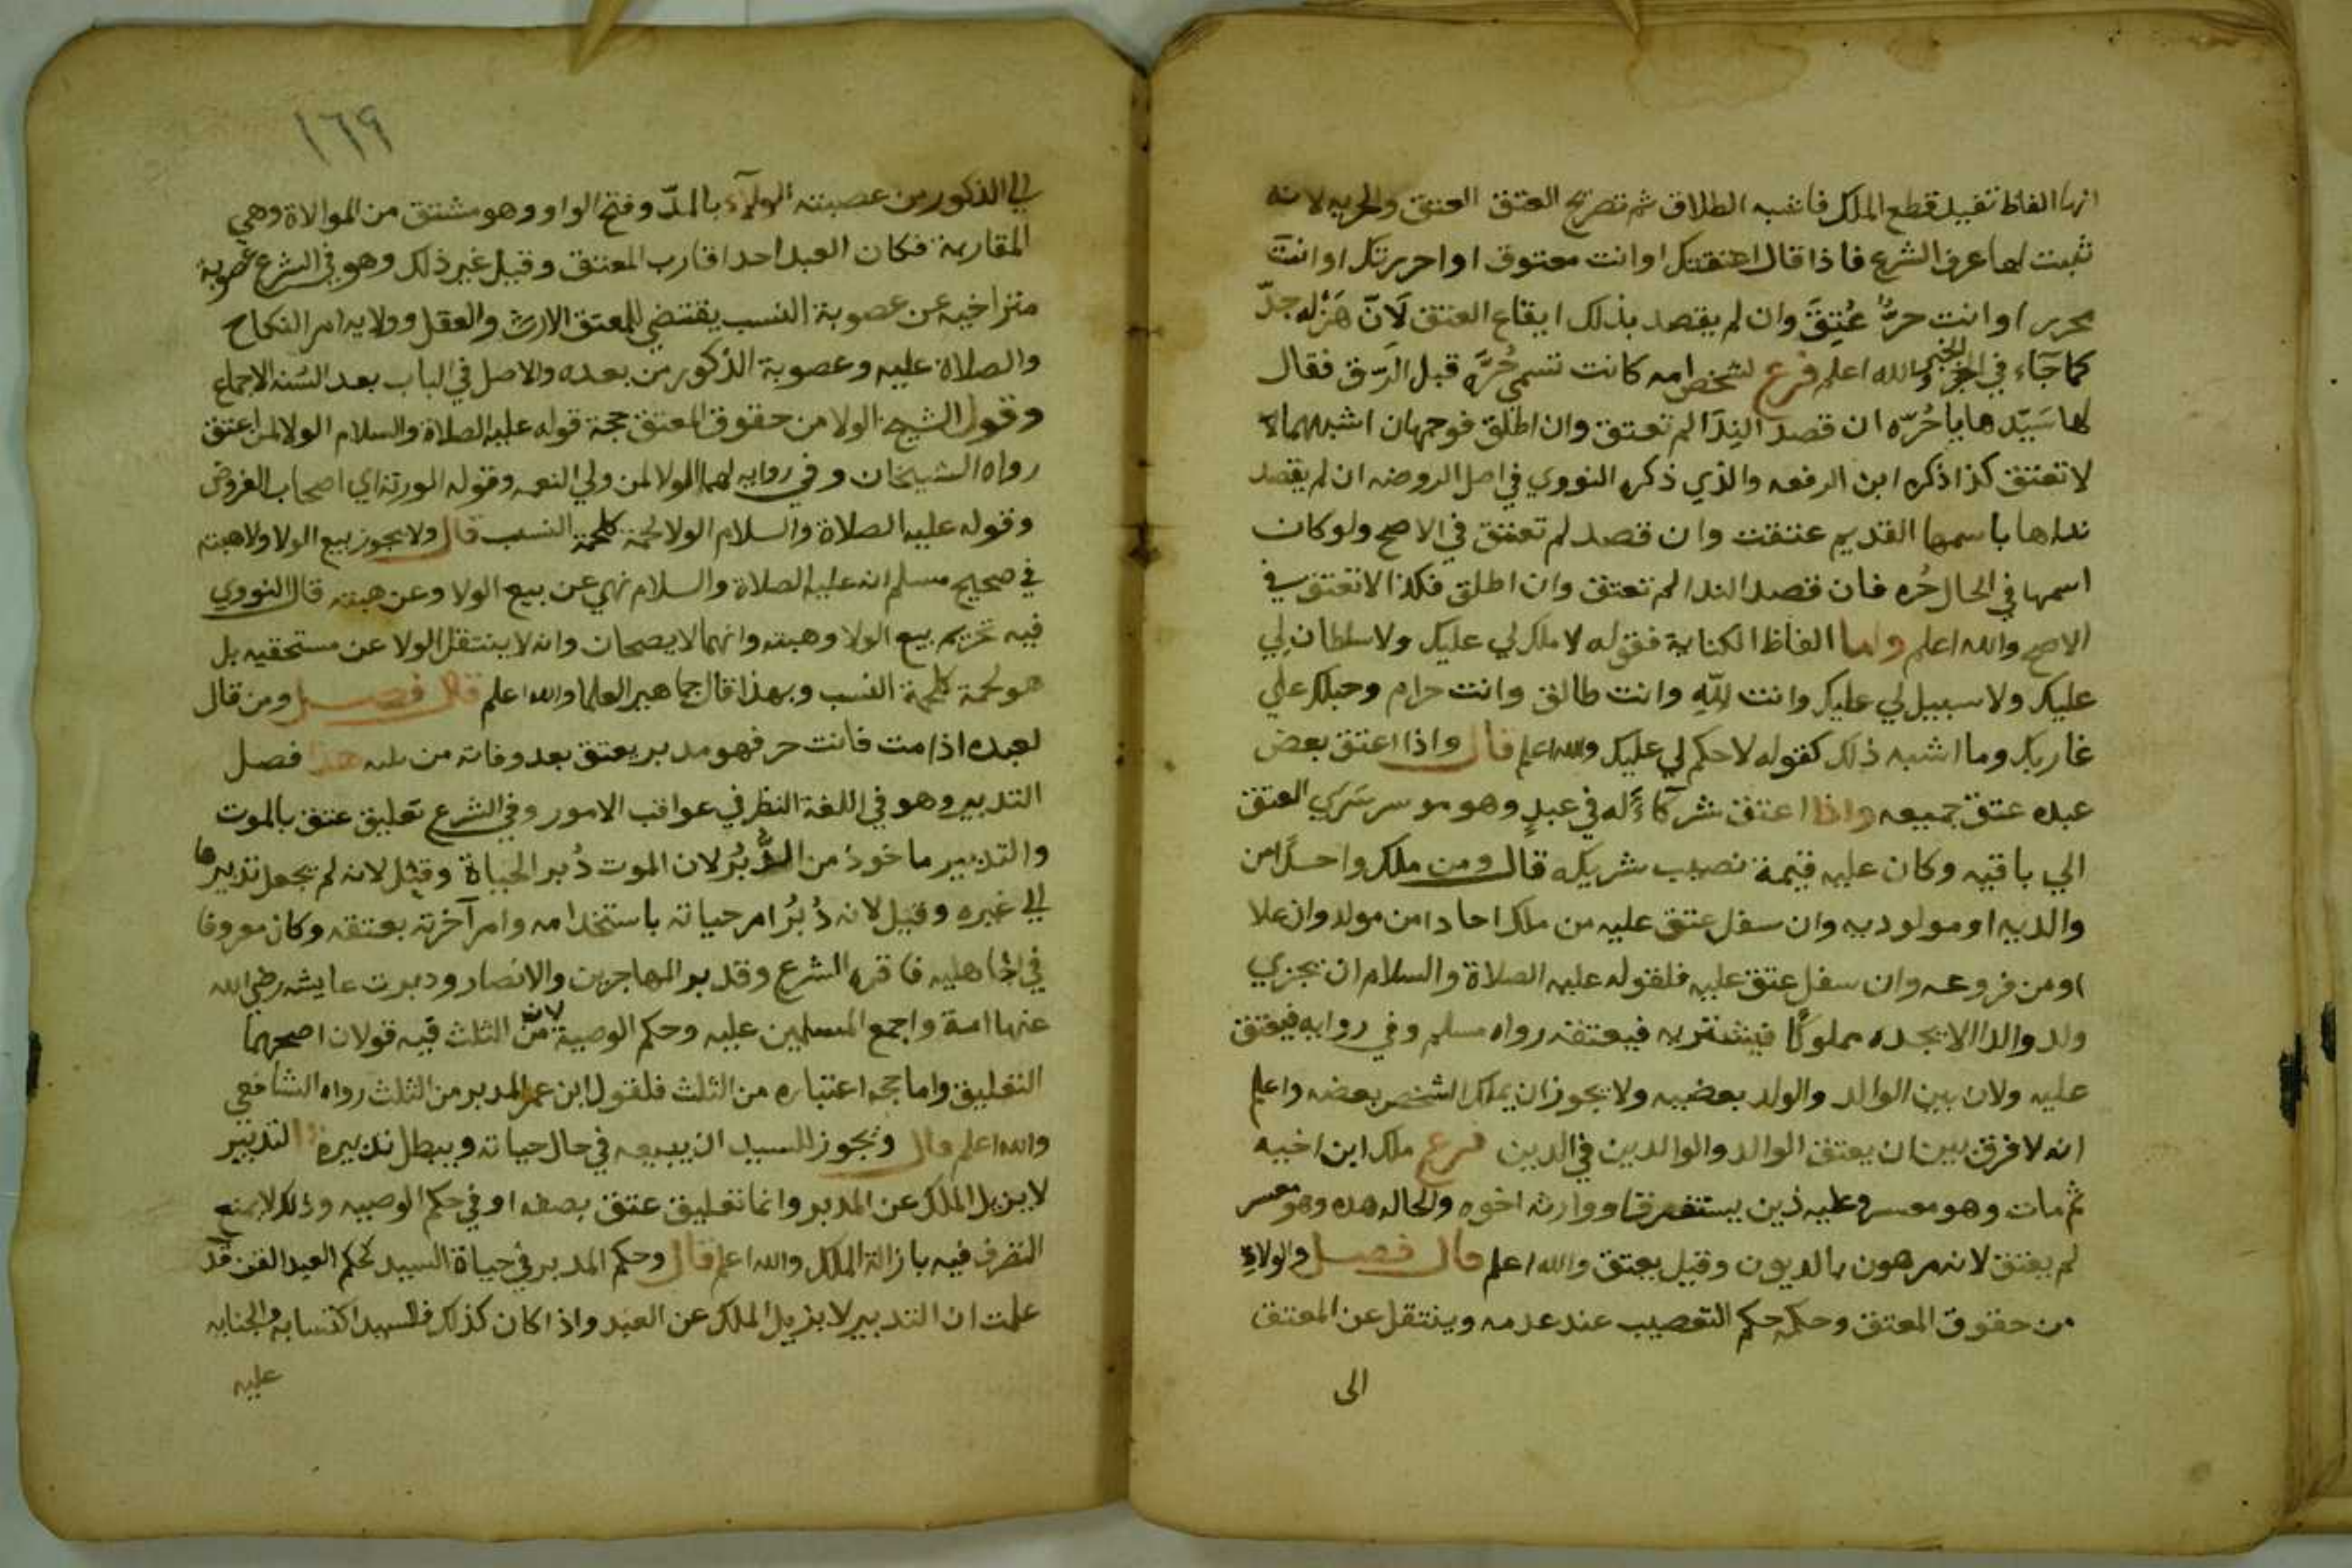 انها الفاظ تفيد قطع الملك فاشبه الطلاق ثم تصريح العتق العتق والحريه لانه
ثبت لهما عرف الشرع فاذا قال اعتقتك او انت معتوق او احررتك او انت
محرر او انت حرٌّ عُتِقَ وان لم يقصد بذلك ايقاع العتق لَانّ هَزْله جدّ
كما جَاء في الخبر والله اعلم فرع لشخص امه كانت تسمى حُرَّه قبل الرّق فقال
لها سَيّدها يا حُرّه ان قصد النِدَا لم تعتق وان اطلق فوجهان اشبههما
لا تعتق كذا ذكره ابن الرفعه والذي ذكره النووي في اصل الروضه ان لم يقصد
نداها باسمها القديم عتقت وان قصد لم تعتق في الاصح ولو كان
اسمها في الحال حُره فان قصد الندا لم تعتق وان اطلق فكذا لا تعتق في
الاصح والله اعلم واما الفاظ الكناية فقوله لا ملك لي عليك ولا سلطان لي
عليك ولا سبيل لي عليك وانت لِلّهِ وانت طالق وانت حرام وحبلك علي
غاربك وما اشبه ذلك كقوله لا حكم لي عليك والله اعلم قال واذا اعتق بعض
عبده عتق جميعه واذا اعتق شركاءً له في عبدٍ وهو موسر سَرَي العتق
الي باقيه وكان عليه قيمة نصيب شريكه قال ومن ملك واحدًا من
والديه او مولوديه وان سفل عتق عليه من ملك احادا من مولد وان علا
او من فروعه وان سفل عتق عليه فلقوله عليه الصلاة والسلام ان يجزي
ولد والدا الا يجده مملوكًا فيشتريه فيعتقه رواه مسلم وفي روايه فيعتق
عليه ولان بين الوالد والولد بعضيه ولا يجوز ان يملك الشخص بعضه واعلم
انه لا فرق بين ان يعتق الوالد والوالدين في الدين فرع ملك ابن اخيه
ثم مات وهو معسر وعليه دين يستغرقه ووارثه اخوه والحاله هذه وهو معسر
لم يعتق لانه مرهون بالديون وقيل يعتق والله اعلم قال فصل والولاء
من حقوق المعتق وحكمه حكم التعصيب عند عدمه وينتقل عن المعتق
الى
١٦٩
الي الذكور من عصبته الولآء بالمدّ وفتح الواو وهو مشتق من الموالاة وهي
المقاربة فكان العبد احد اقارب المعتق وقيل غير ذلك وهو في الشرع عصوبة
متراخيه عن عصوبة النسب يقتضي للمعتق الارث والعقل وولايه امر النكاح
والصلاة عليه وعصوبة الذكور من بعده والاصل في الباب بعد السُنه الاجماع
وقول الشيخ الولا من حقوق المعتق حجة قوله عليه الصلاة والسلام الولا لمن اعتق
رواه الشيخان وفي روايه لهما الولا لمن ولي النعمه وقوله المورثة اي اصحاب الفروض
وقوله عليه الصلاة والسلام الولا لحمة كلحمة النسب قال ولا يجوز بيع الولا ولا هبته
في صحيح مسلم انه عليه الصلاة والسلام نهي عن بيع الولا وعن هبته قال النووي
فيه تحريم بيع الولا وهبته وانهما لا يصحان وانه لا ينتقل الولا عن مستحقيه بل
هو لحمة كلحمة النسب وبهذا قال جماهير العلما والله اعلم قال فصل ومن قال
لعبده اذا مت فانت حر فهو مدبر يعتق بعد وفاته من ثلثه هذا فصل
التدبير وهو في اللغة النظر في عواقب الامور وفي الشرع تعليق عتق بالموت
والتدبير ماخوذ من الدُّبُر لان الموت دُبر الحياة وقيل لانه لم يجعل تدبيرها
الي غيره وقيل لانه دُبرُ امر حياته باستخدامه وامر آخرته بعتقه وكان معروفا
في الجاهليه فاقره الشرع وقد بر المهاجرين والانصار ودبرت عايشه رضي الله
عنها امة واجمع المسلمين عليه وحكم الوصية لانه من الثلث فيه قولان اصحهما
التعليق واما حجه اعتباره من الثلث فلقول ابن عمر المدبر من الثلث رواه الشافعي
والله اعلم قال ويجوز للسيد ان يبيعه في حال حياته ويبطل تدبيره التدبير
لا يزيل الملك عن المدبر وانما تعليق عتق بصفه او في حكم الوصيه وذلك لا يمنع
التصرف فيه بازالة الملك والله اعلم قال وحكم المدبر في حياة السيد كحكم العبد القن قد
علمت ان التدبير لا يزيل الملك عن العبد واذا كان كذلك فللسيد اكتسابه والجنايه
عليه